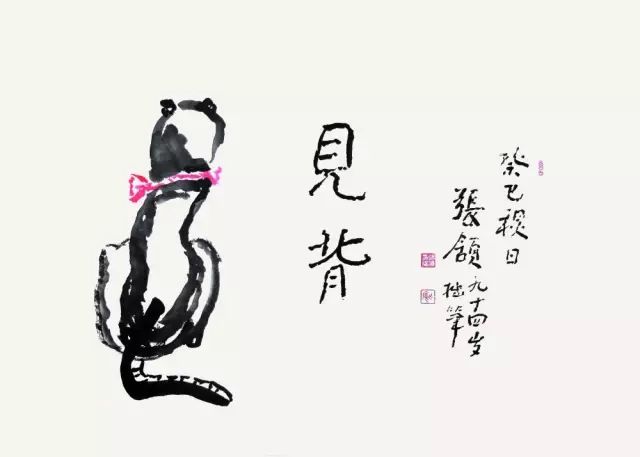 見背
癸巳秋日
張頷
九十四岁
拙筆